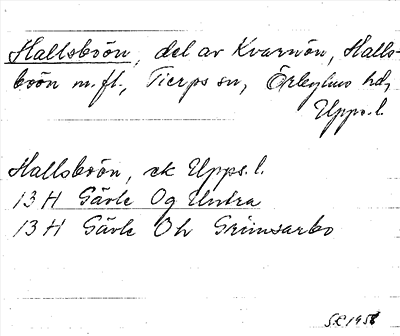 Hallsboön, del av Kvarnön, Halls-
boön m.fl., Tierps sn, Örbyhus hd,
Upps. l.
Hallsboön, ek Upps. l.
13 H Gävle Og Untra
13 H Gävle Oh Grimsarbo
S.E. 1958